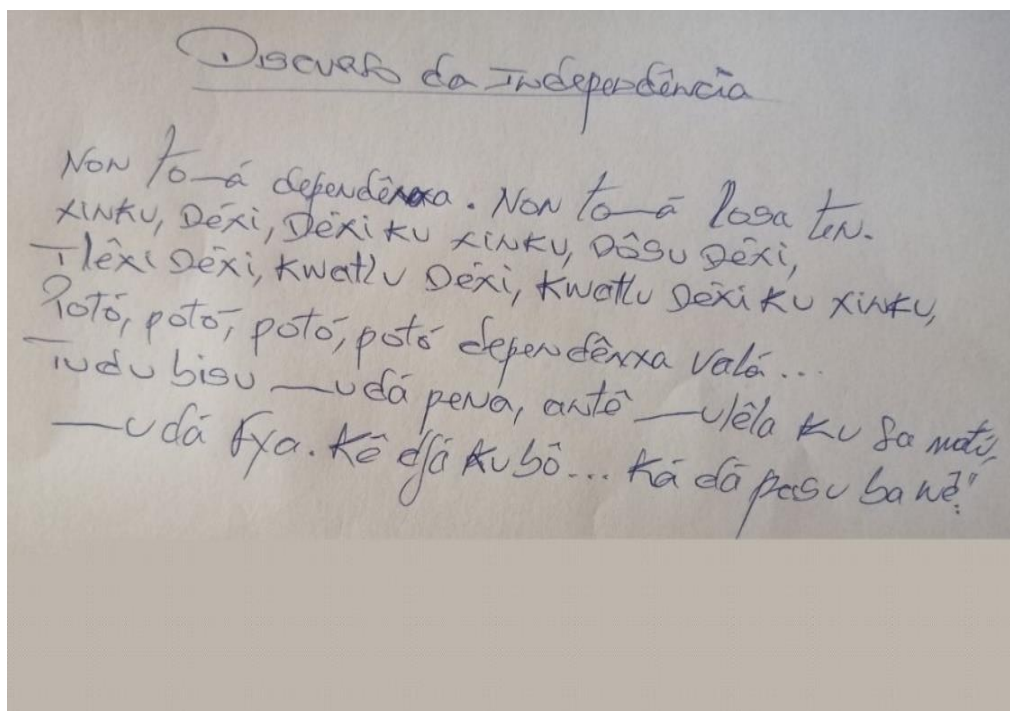 Discurso da Independência
Non to—á dependênxa. Non to—á losa ten.
xinku, Déxi, Déxi ku xinku, Dôsu Déxi,
Tlêxi Déxi, kwatlu Déxi, kwatlu Déxi ku xinku,
Potó, potó, potó, potó dependênxa valá...
Tudu bisu —u dá pena, antô —ulêla ku sa mati,
—u dá fya. Kê djá ku bô... Ká dá pasu ba wê!